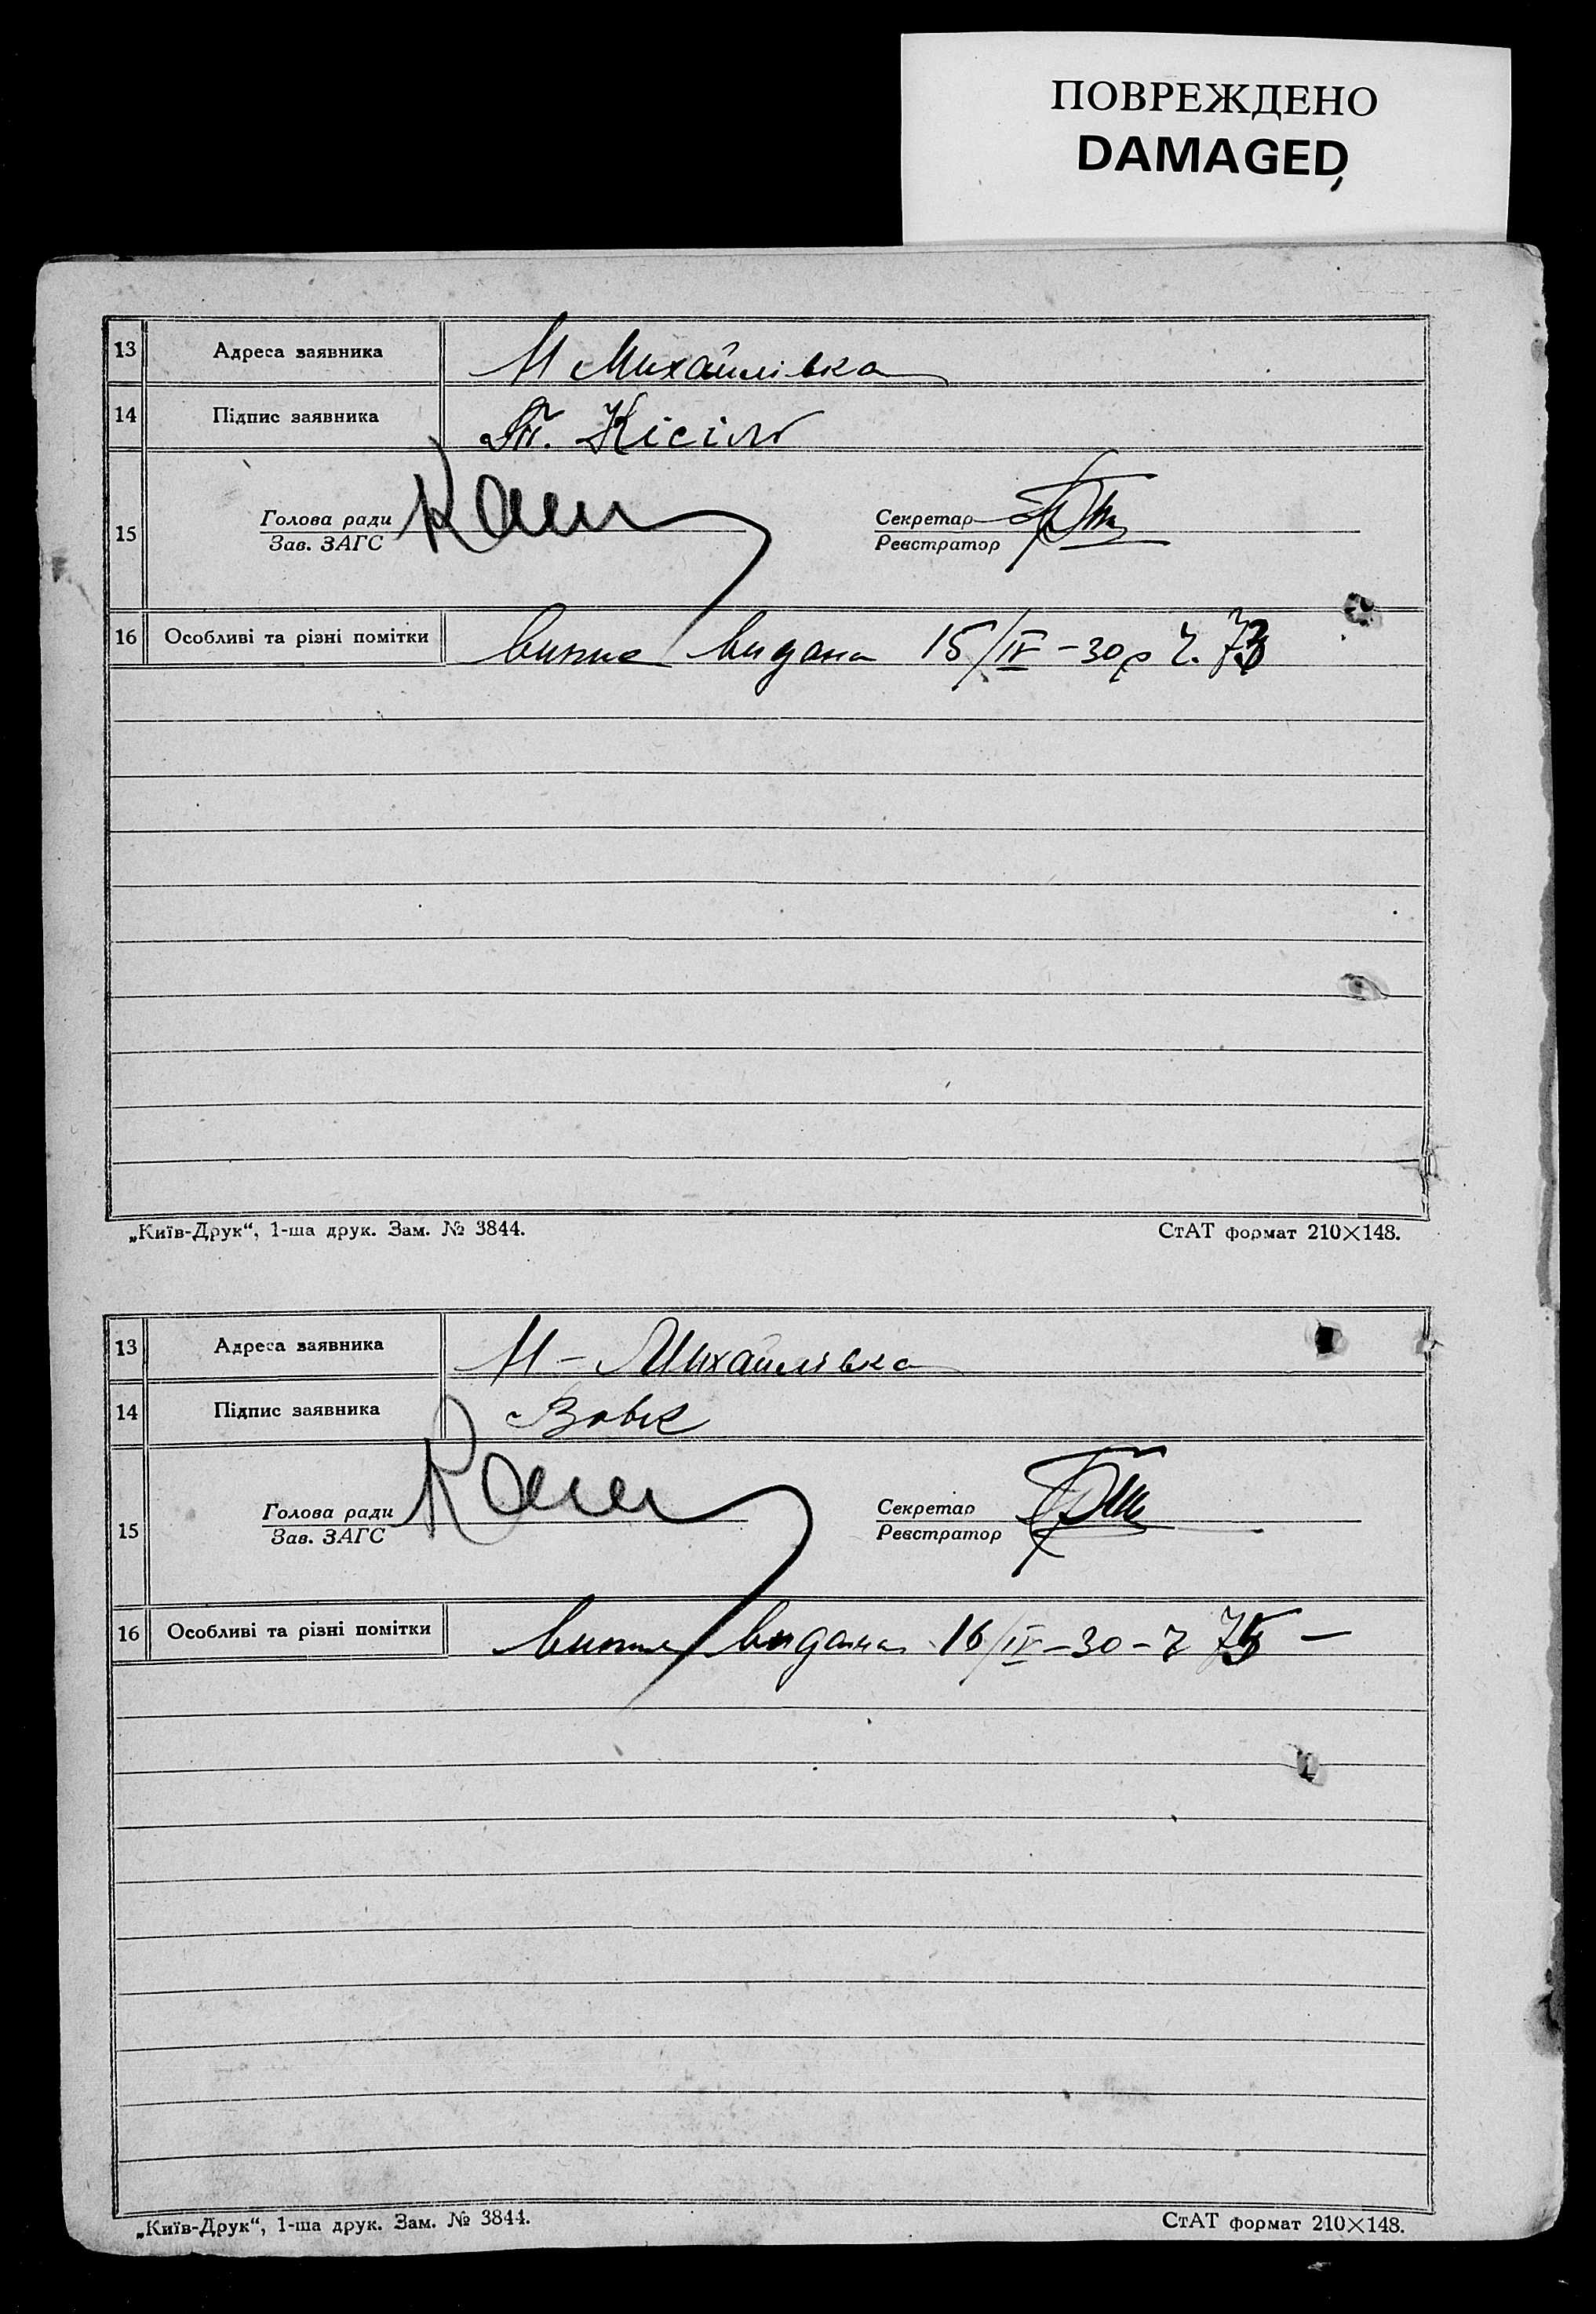 ПОВРЕЖДЕНО
DAMAGED
13 Адреса заявника М Михайлівка
14 Підпис заявника Кісіль
15 Голова ради
Зав. ЗАГС
Секретар
Реєстратор
16 Особливі та різні помітки видана 15/IV-30р Ч. 73
„Київ-Друк“, 1-ша друк. Зам. № 3844. СтАТ формат 210×148.
13 Адреса заявника М – Михайлівка
14 Підпис заявника Вовк
15 Голова ради
Зав. ЗАГС
Секретар
Реєстратор
16 Особливі та різні помітки видана 16/IV-30 – Ч 75 –
„Київ-Друк“, 1-ша друк. Зам. № 3844. СтАТ формат 210×148.